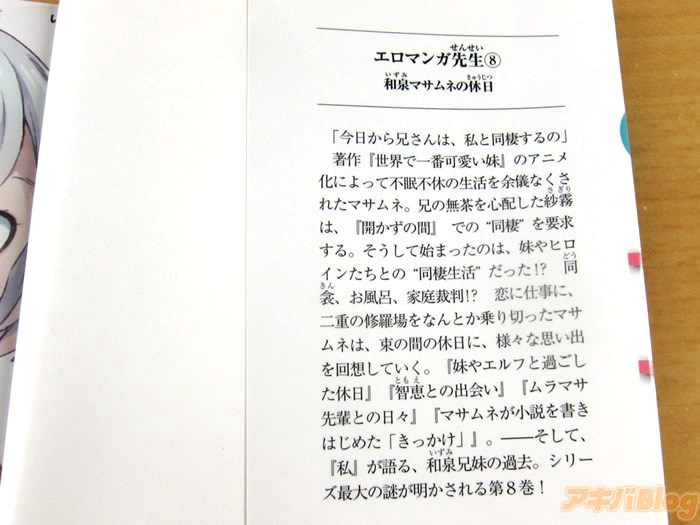 せんせい
エロマンガ先生⑧
いずみ きゅうじつ
和泉マサムネの休日
「今日から兄さんは、私と同棲するの」
著作『世界で一番可愛い妹』のアニメ
化によって不眠不休の生活を余儀なくさ
れたマサムネ。兄の無茶を心配した紗霧
さぎり
は、『開かずの間』での“同棲”を要求
する。そうして始まったのは、妹やヒロ
インたちとの“同棲生活”だった!? 同
どう
衾、お風呂、家庭裁判!? 恋に仕事に、
きん
二重の修羅場をなんとか乗り切ったマサ
ムネは、束の間の休日に、様々な思い出
を回想していく。『妹やエルフと過ごし
た休日』『智恵との出会い』『ムラマサ
ともえ
先輩との日々』『マサムネが小説を書き
はじめた「きっかけ」』。――そして、
『私』が語る、和泉兄妹の過去。シリー
いずみ
ズ最大の謎が明かされる第8巻!
アキバBlog